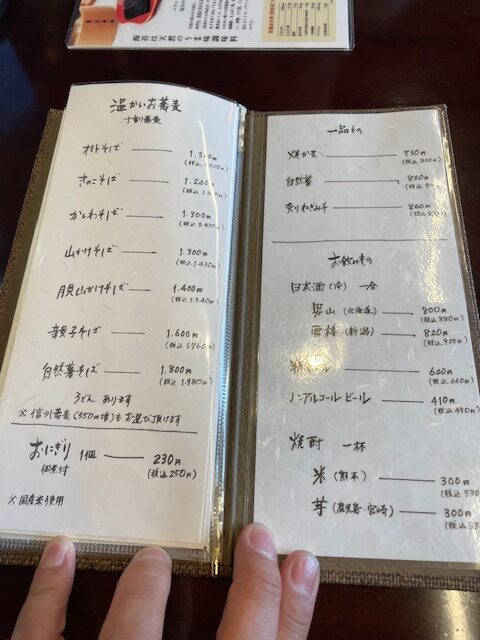 海谷は天然のうま味調味料
温かいお蕎麦
十割蕎麦
そば
きのこそば 1.200円
かしわそば 1.300円
(税込 1.430円)
山かけそば 1.300円
(税込 1.430円)
月見山かけそば 1.400円
(税込 1.540円)
親子そば 1.600円
(税込 1.760円)
自然薯そば 1.800円
(税込 1.980円)
うどん あります
※信州蕎麦(550円増)もお選び頂けます
おにぎり 1個 230円
佃煮付 (税込 250円)
※国産米使用
一品もの
焼かま 730円
(税込 800円)
自然薯 820円
炙りねぎみそ 800円
お飲みもの
日本酒(冷) 一合
男山(北海道) 800円
(税込 880円)
(新潟) 820円
(税込 900円)
600円
(税込 660円)
ノンアルコールビール 410円
(税込 450円)
焼酎 一杯
米(熊本) 300円
(税込 330
芋(鹿児島・宮崎) 300円
(税込 33